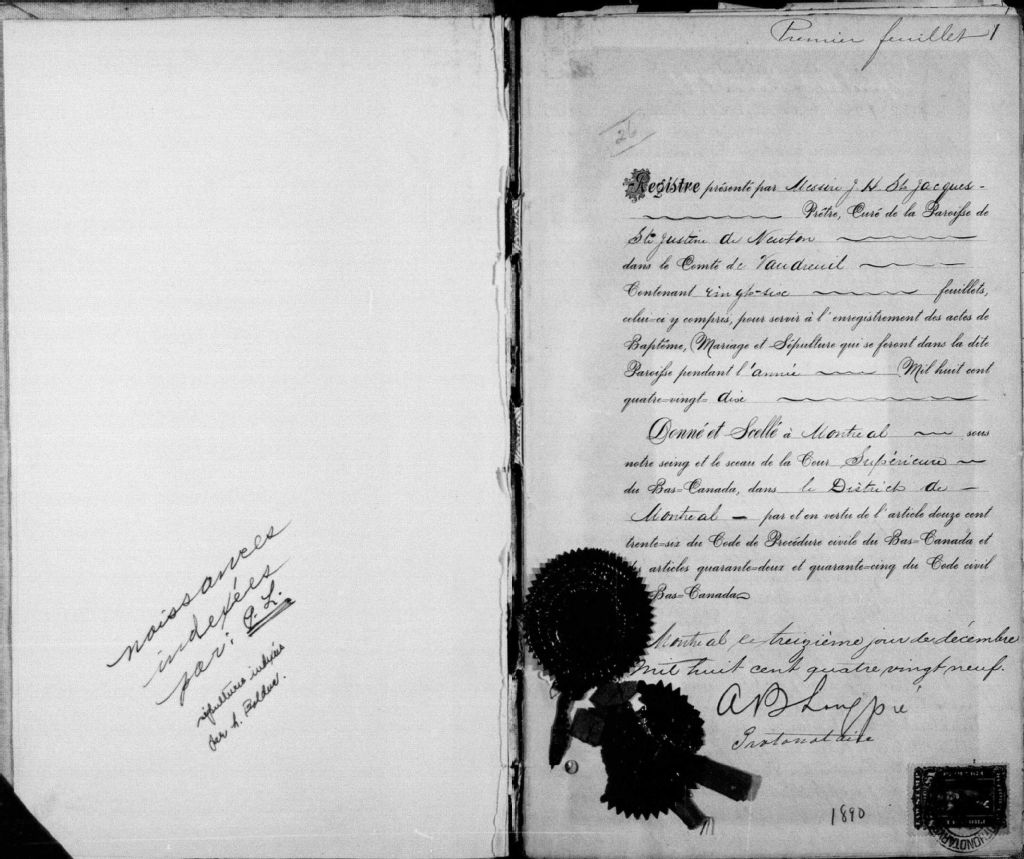 naissances
indexées
par: G. L.
sépultures indexées
par A. Bolduc.
Premier feuillet 1
26
Registre présenté par Messire J H Ste Jacques -
Prêtre, Curé de la Paroisse de
Ste Justine de Newton
dans le Comté de Vaudreuil
Contenant vingt-six feuillets,
celui-ci y compris, pour servir à l'enregistrement des actes de
Baptême, Mariage et Sépulture qui se feront dans la dite
Paroisse pendant l'année Mil huit cent
quatre-vingt-dix
Donné et Scellé à Montreal sous
notre seing et le sceau de la Cour Supérieure
du Bas-Canada, dans le District de -
Montreal - par et en vertu de l'article douze cent
trente-six du Code de Procédure civile du Bas-Canada et
articles quarante-deux et quarante-cinq du Code civil
Bas-Canada
Montreal ce treizième jour de décembre
mil huit cent quatre vingt neuf.
A B Longpré
Protonotaire
1890